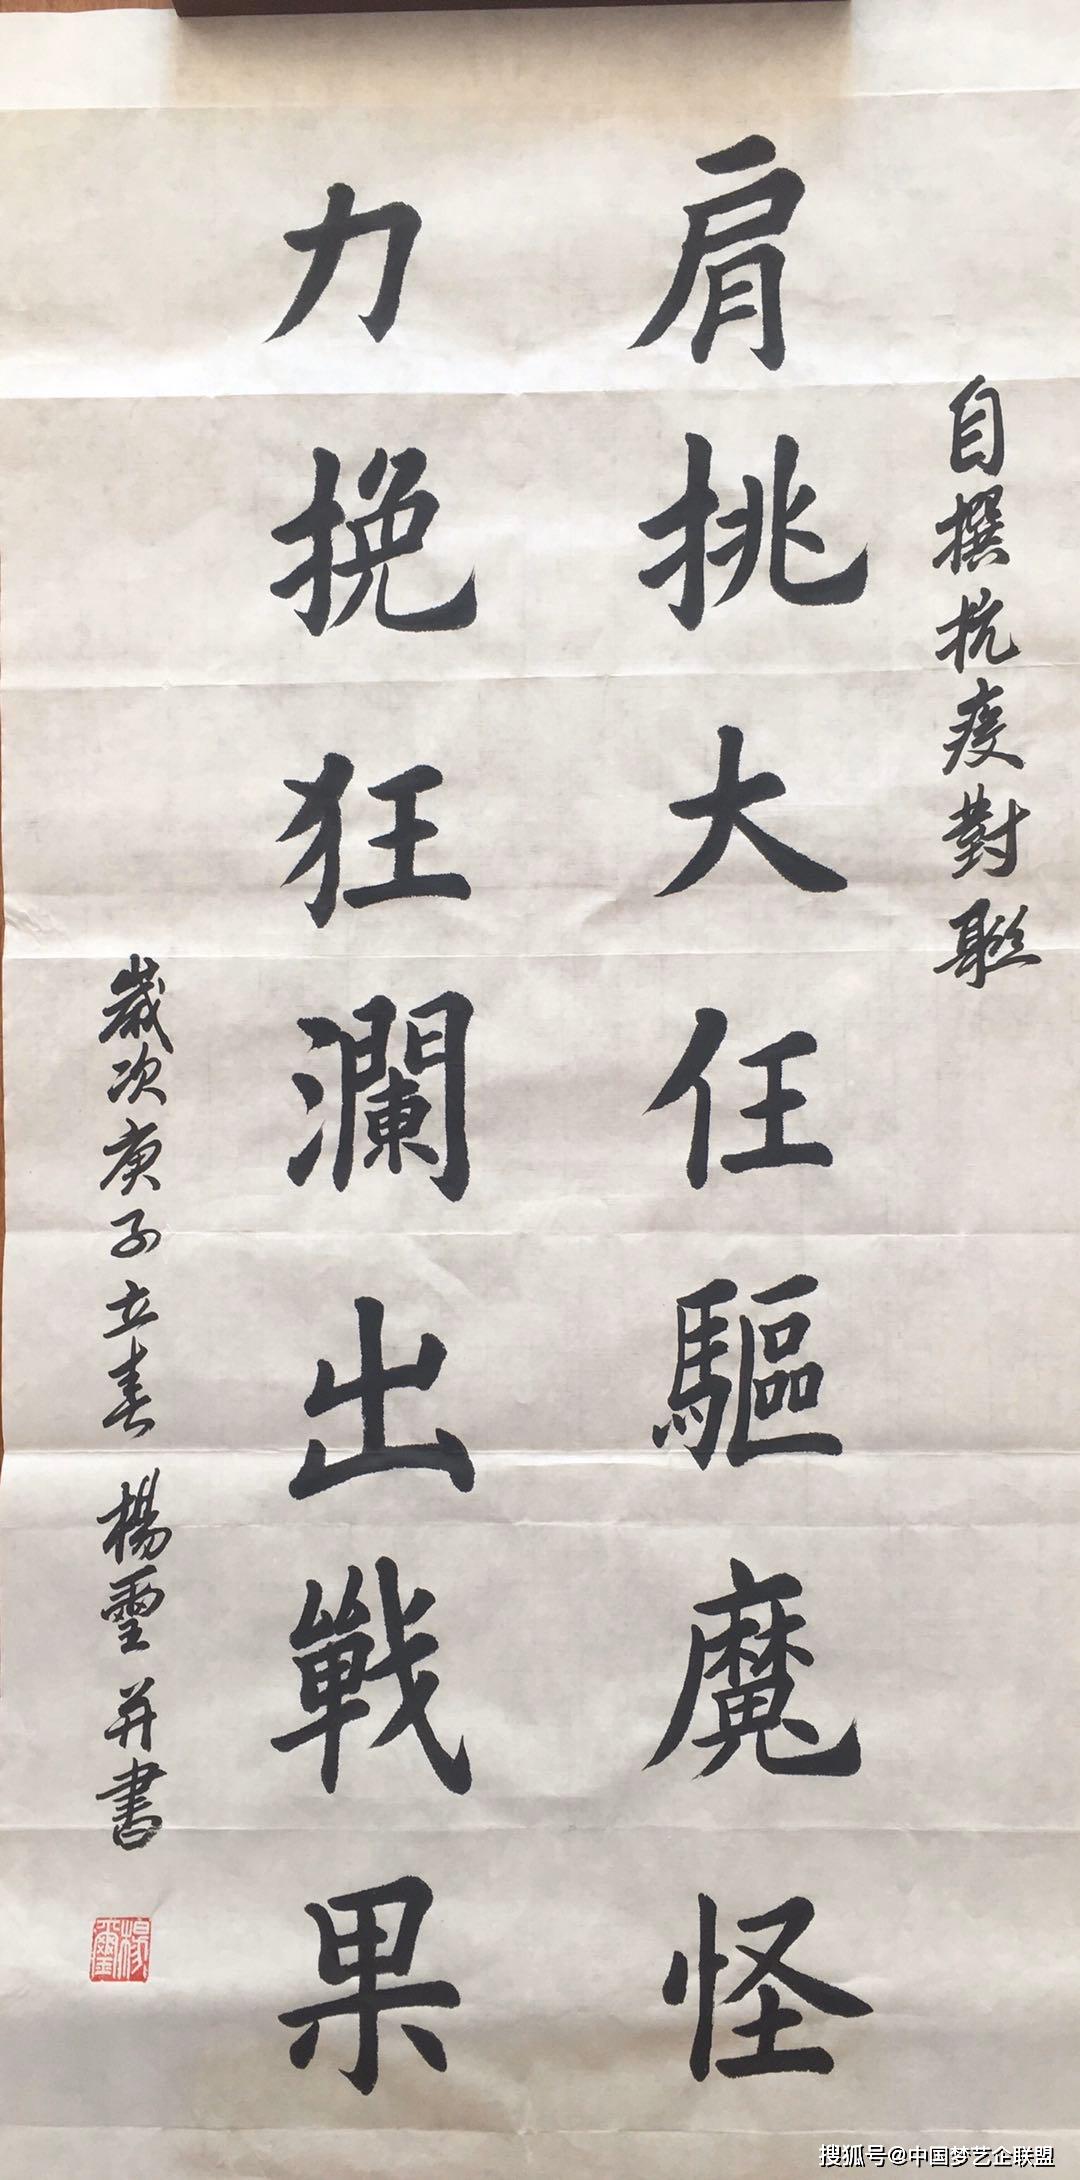 自撰抗疫對聯
肩挑大任驅魔怪
力挽狂瀾出戰果
歲次庚子立春 楊璽并書
楊璽
搜狐号@中国梦艺企联盟